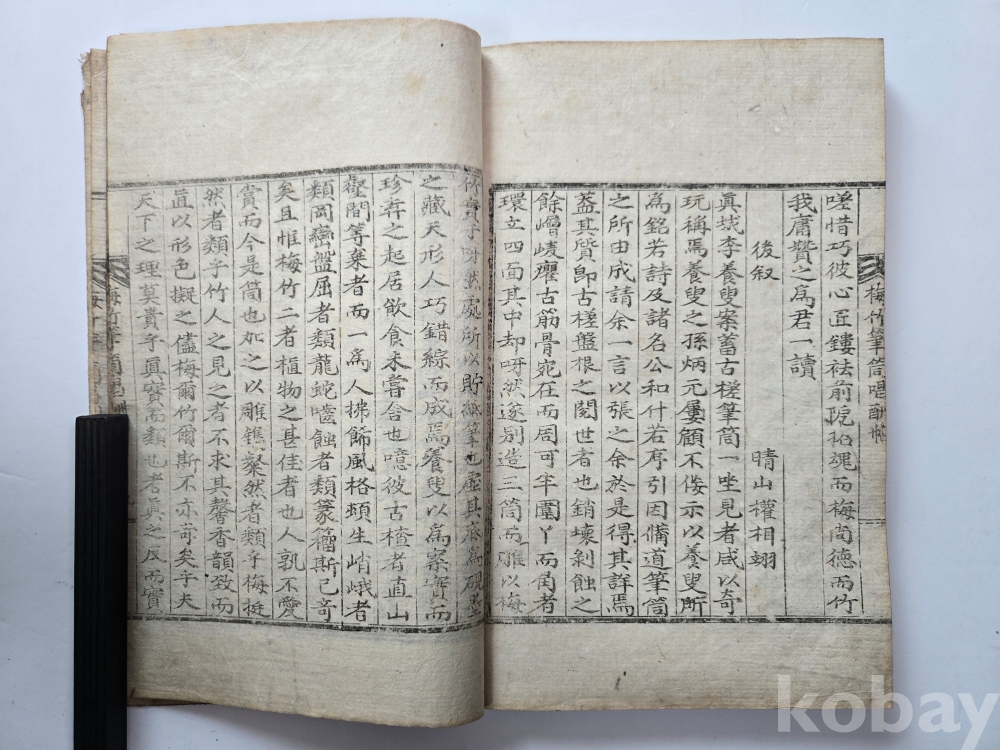 嗟惜巧彼心匠鏤袪前院招魂而梅尚德而竹
我庸贊之爲君一讀
晴山權相翊
後叙
眞城李養叟案蓄古槎筆筒一坐見者咸以奇
玩稱焉養叟之孫炳元屢顧不佞示以養叟所
爲銘若詩及諸名公和什若序引因備道筆筒
之所由成請余一言以張之余於是得其詳焉
盖其質卽古槎盤根之閱世者也銷壞剝蝕之
餘嶒崚癯古筋骨宛在而周可半圍丫而角者
環立四面其中却呀然遂別造三筒而雕以梅
竹實于呀然處所以貯
筆也虛其
爲硯
之藏天形人巧錯綜而成焉養叟以爲案寶而
珍弆之起居飮食未嘗舍也噫彼古楂者直山
壑間等棄者而一爲人拂餙風格頓生峭峨者
類岡巒盤屈者類龍蛇嚙蝕者類篆籒斯已奇
矣且惟梅竹二者植物之甚佳者也人孰不愛
賞而今是筒也加之以雕鐫粲然者類乎梅挺
然者類乎竹人之見之者不求其馨香韻致而
直以形色擬之儘梅爾竹爾斯不亦奇矣乎夫
天下之理莫貴乎眞實而類也者眞之反而實
梅竹筆筒唱酬帖